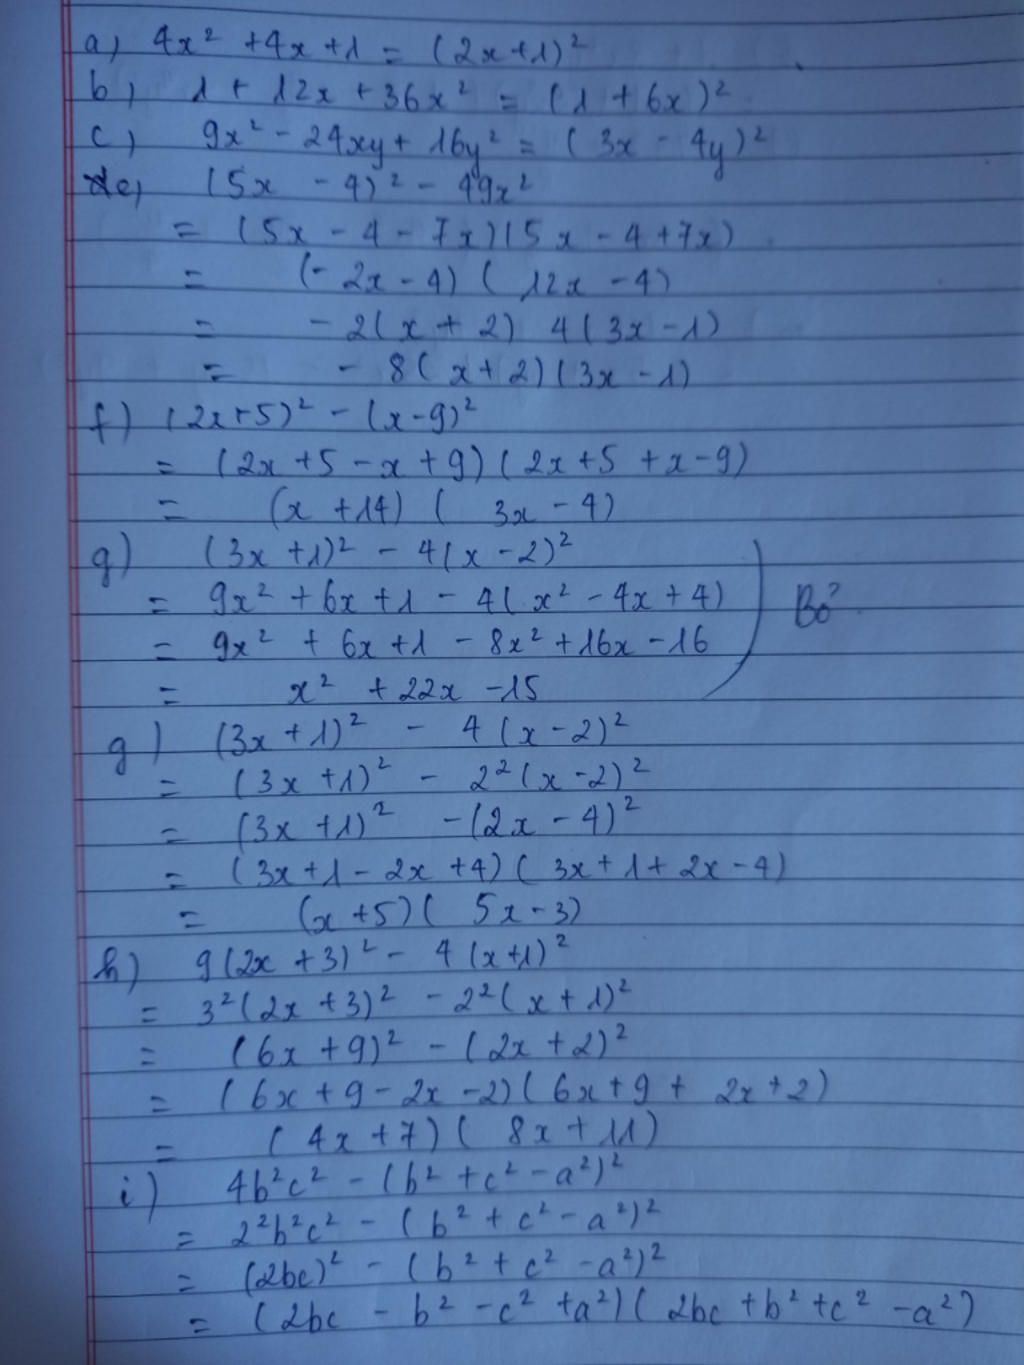 a) 4x² + 4x + 1 = (2x+1)²
b) 1 + 12x + 36x² = (1 + 6x)²
c) 9x² - 24xy + 16y² = (3x - 4y)²
e) (5x - 4)² - 49x²
= (5x - 4 - 7x)(5x - 4 + 7x)
= (- 2x - 4) (12x - 4)
= - 2(x + 2) 4(3x - 1)
= - 8(x + 2)(3x - 1)
f) (2x+5)² - (x-9)²
= (2x + 5 - x + 9)(2x + 5 + x - 9)
= (x + 14) (3x - 4)
g) (3x + 1)² - 4(x - 2)²
= 9x² + 6x + 1 - 4(x² - 4x + 4) Bỏ
= 9x² + 6x + 1 - 8x² + 16x - 16
= x² + 22x - 15
g) (3x + 1)² - 4(x - 2)²
= (3x + 1)² - 2²(x - 2)²
= (3x + 1)² - (2x - 4)²
= (3x + 1 - 2x + 4)(3x + 1 + 2x - 4)
= (x + 5)(5x - 3)
h) 9(2x + 3)² - 4(x+1)²
= 3²(2x + 3)² - 2²(x + 1)²
= (6x + 9)² - (2x + 2)²
= (6x + 9 - 2x - 2)(6x + 9 + 2x + 2)
= (4x + 7)(8x + 11)
i) 4b²c² - (b² + c² - a²)²
= 2²b²c² - (b² + c² - a²)²
= (2bc)² - (b² + c² - a²)²
= (2bc - b² - c² + a²)(2bc + b² + c² - a²)